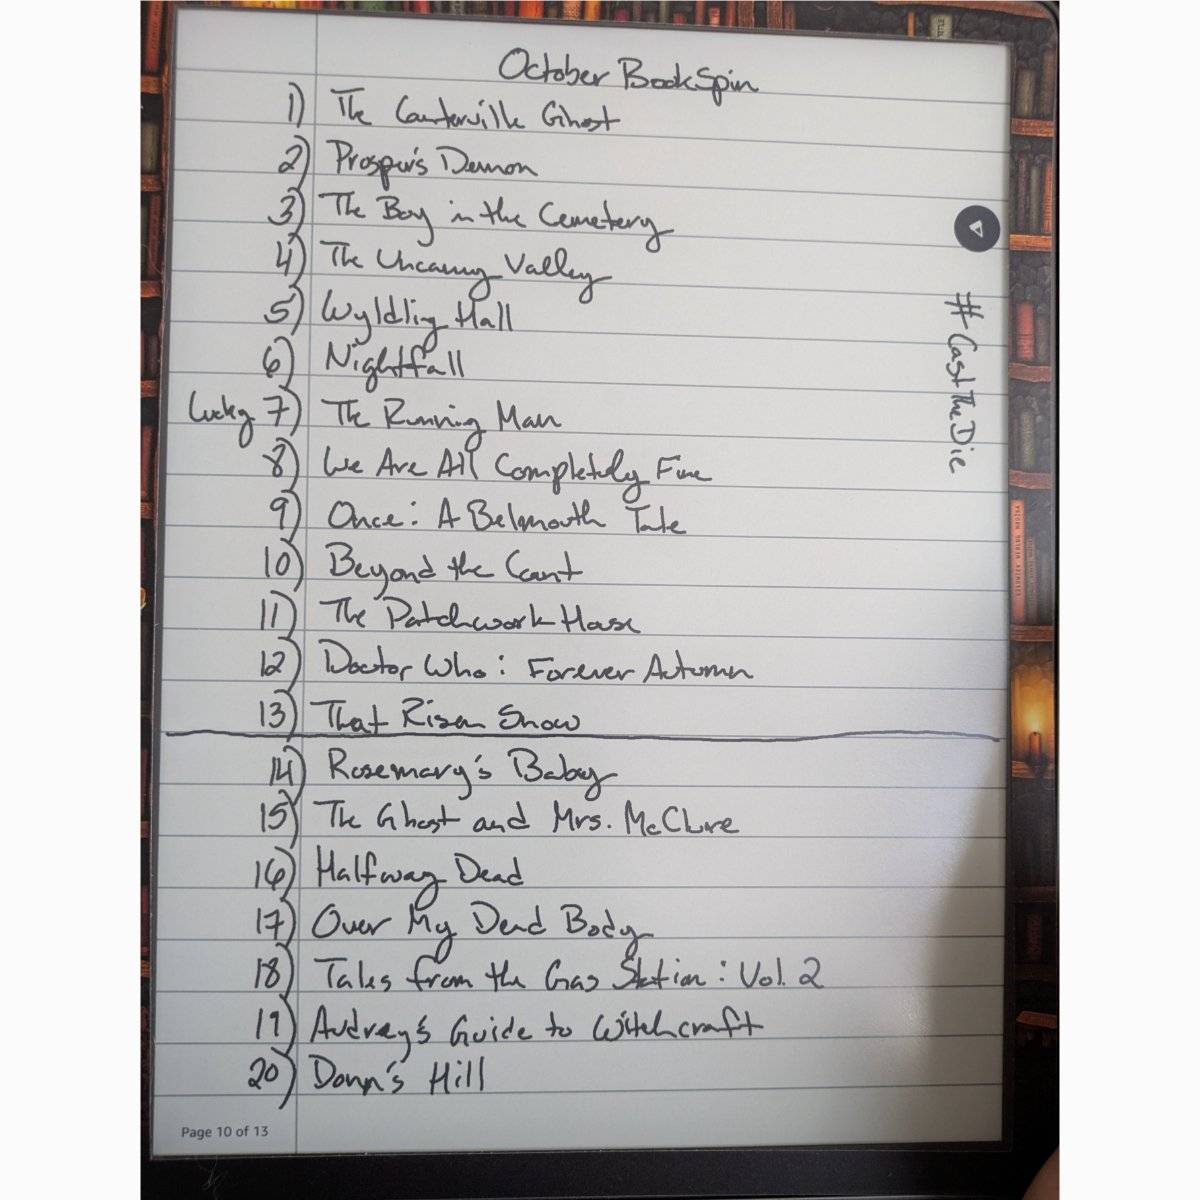 October BookSpin
1) The Canterville Ghost
2) Prosper's Demon
3) The Boy in the Cemetery
4) The Uncanny Valley
5) Wyldling Hall
6) Nightfall
Lucky 7) The Running Man
8) We Are All Completely Fine
9) Once: A Belmouth Tale
10) Beyond the Count
11) The Patchwork House
12) Doctor Who: Forever Autumn
13) That Risen Snow
14) Rosemary's Baby
15) The Ghost and Mrs. McClure
16) Halfway Dead
17) Over My Dead Body
18) Tales from the Gas Station: Vol. 2
19) Audrey's Guide to Witchcraft
20) Donn's Hill
#CastTheDie
Page 10 of 13